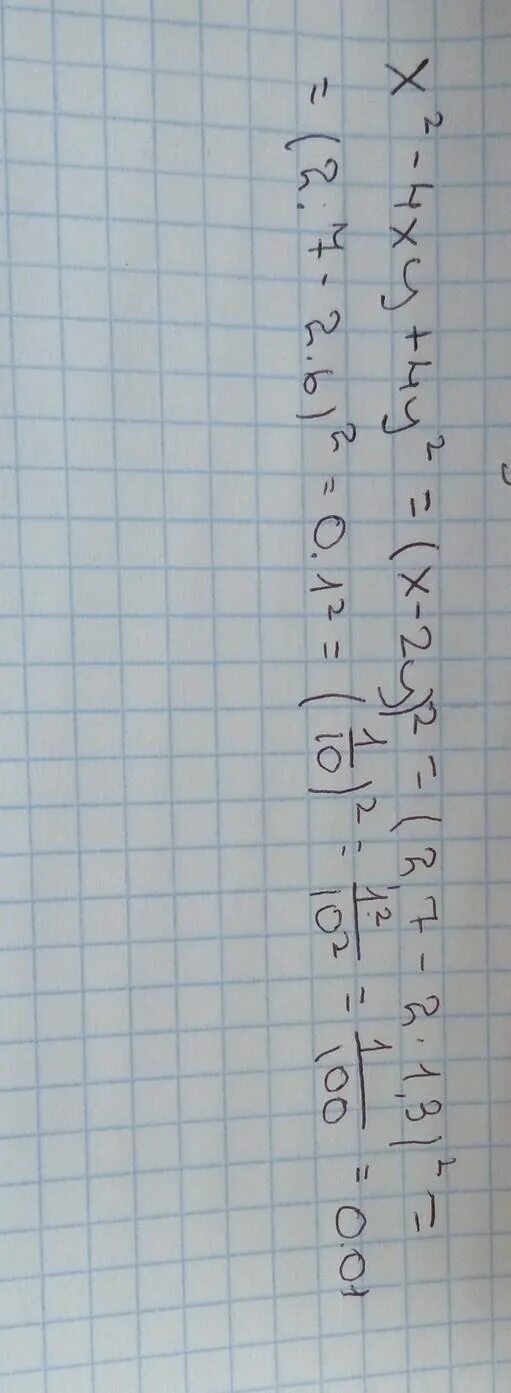 x² - 4xy + 4y² = (x - 2y)² = (2,7 - 2·1,3)² =
= (2.7 - 2.6)² = 0.1² = (1/10)² = 1²/10² = 1/100 = 0.01